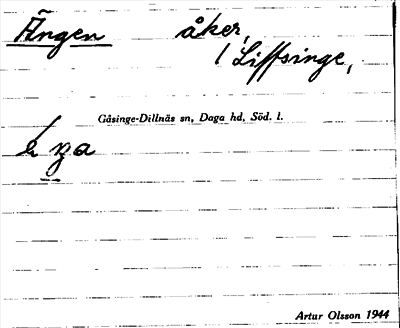 Ängen åker,
1 Liffsinge,
Gåsinge-Dillnäs sn, Daga hd, Söd. l.
Artur Olsson 1944